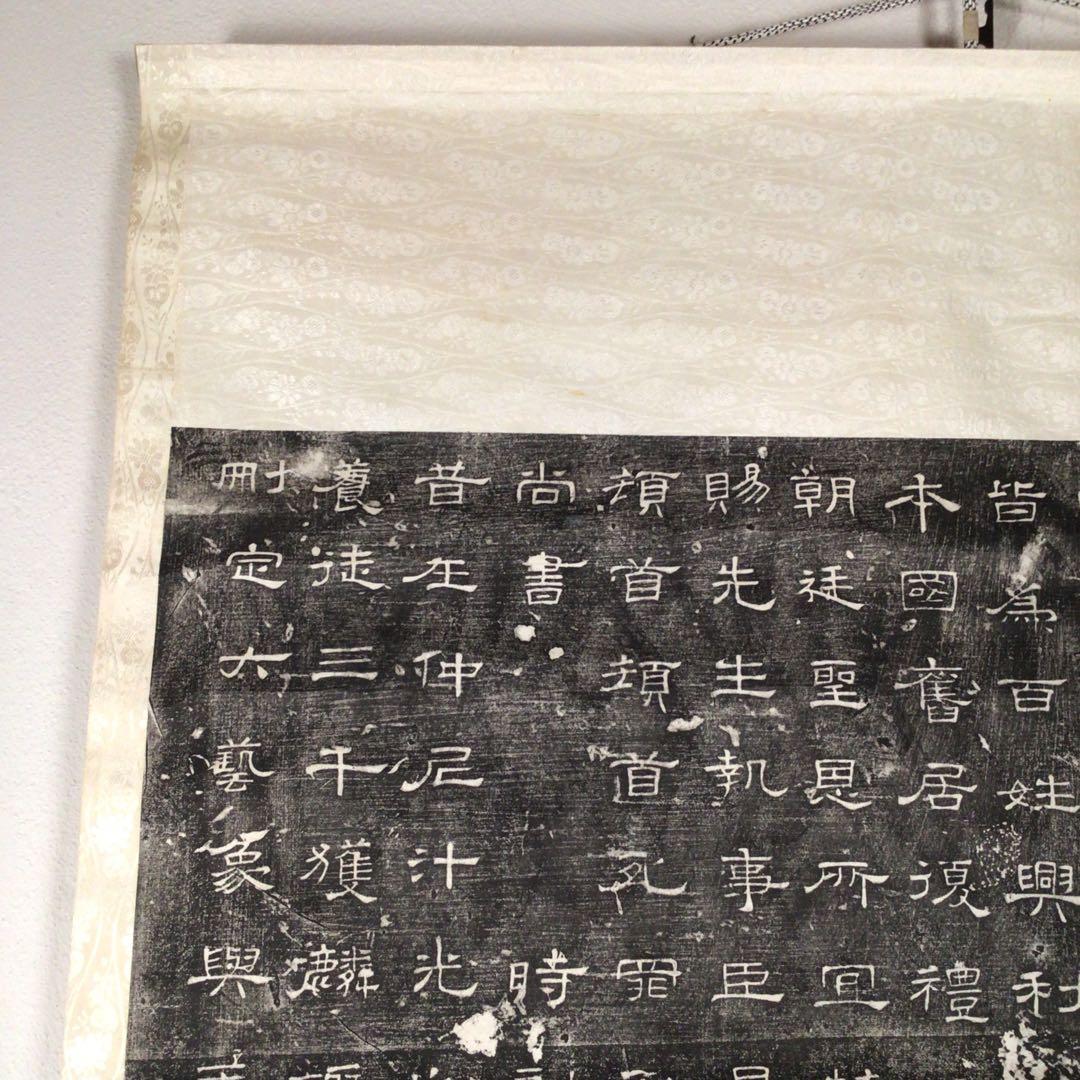 皆為百姓興利
本國舊居復禮
朝廷聖恩所宜
賜先生執事臣
頓首頓首死罪
尚書　時
昔在仲尼汁光
養徒三千獲麟
刪定六藝象與